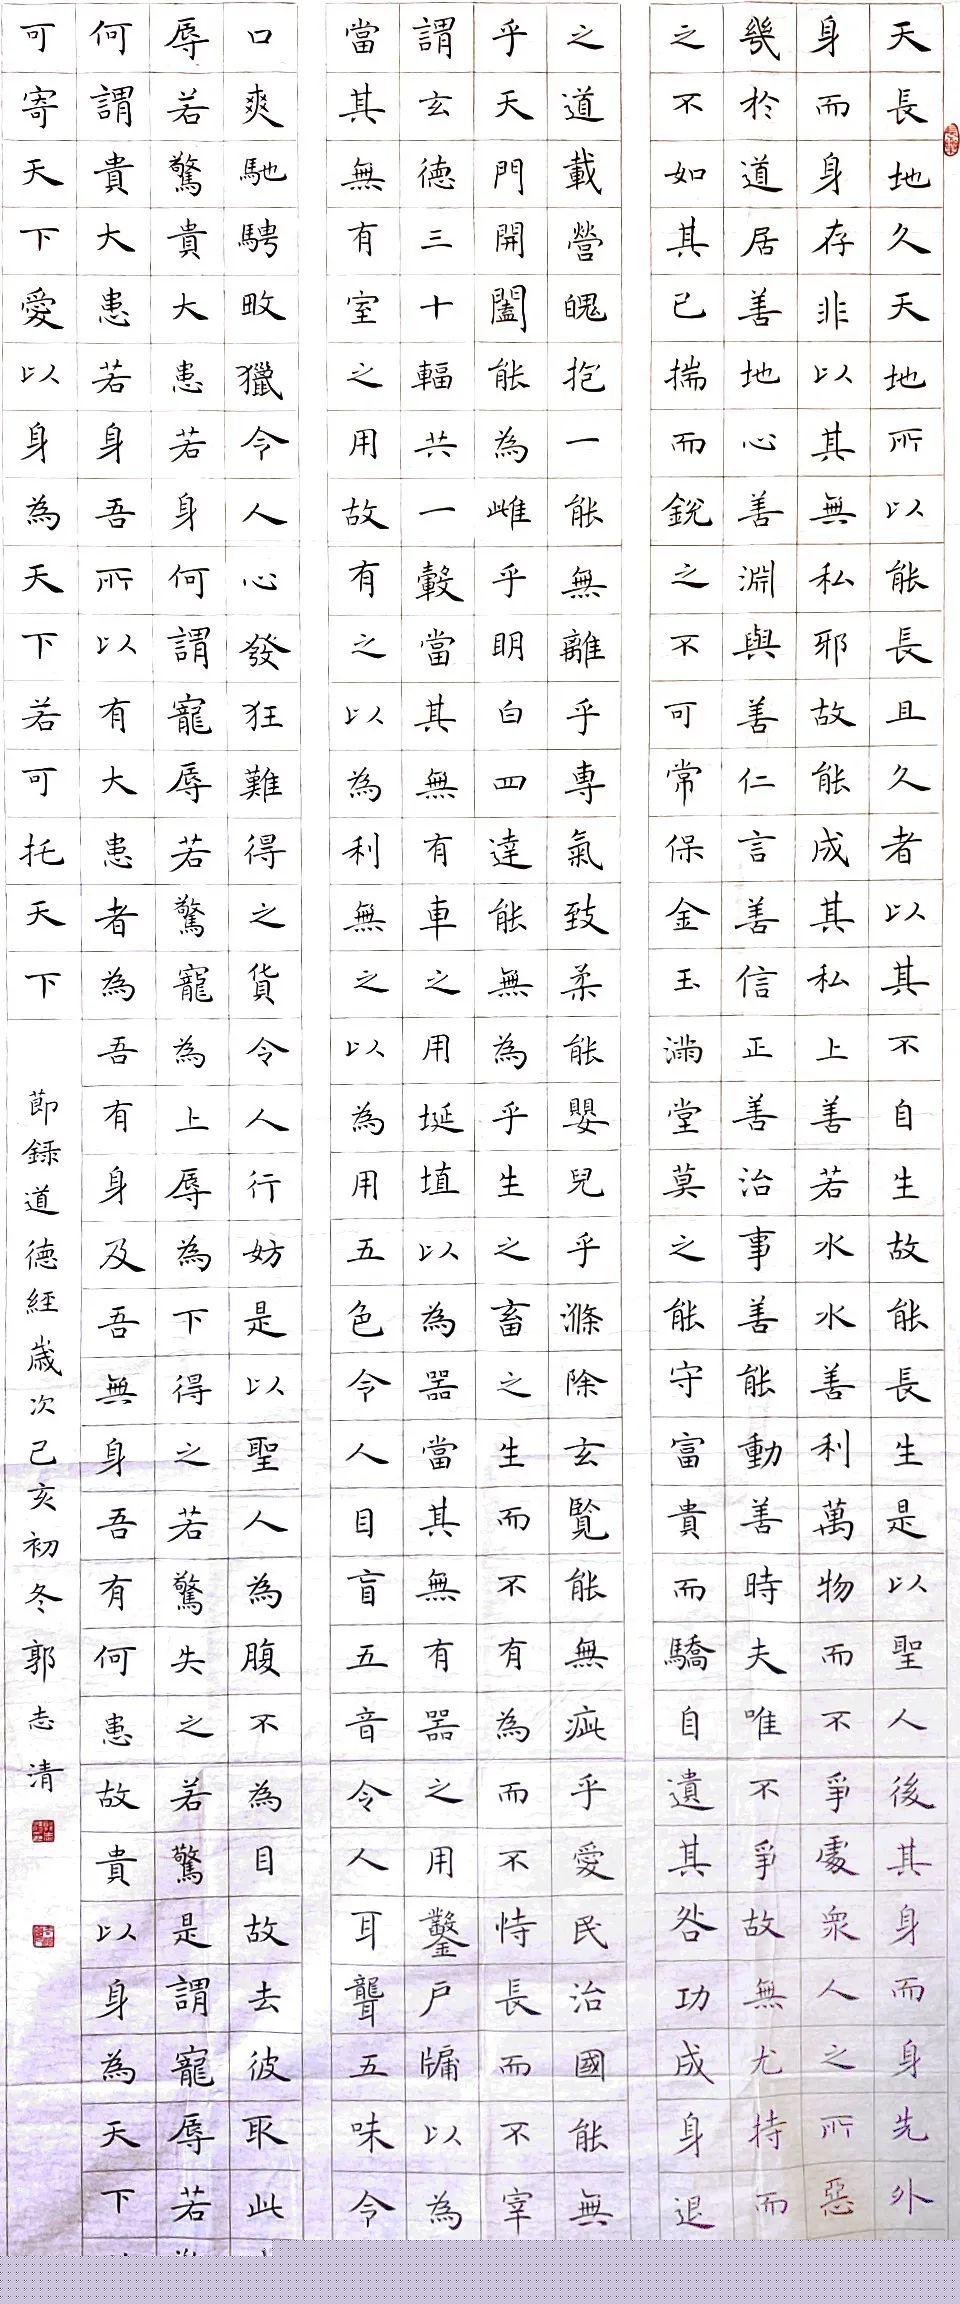 天長地久天地所以能長且久者以其不自生故能長生是以聖人後其身而身先外
身而身存非以其無私邪故能成其私上善若水水善利萬物而不爭處衆人之所惡
幾於道居善地心善淵與善仁言善信正善治事善能動善時夫唯不爭故無尤持而
之不如其已揣而銳之不可常保金玉滿堂莫之能守富貴而驕自遺其咎功成身退
之道載營魄抱一能無離乎專氣致柔能嬰兒乎滌除玄覽能無疵乎愛民治國能無
乎天門開闔能為雌乎明白四達能無為乎生之畜之生而不有為而不恃長而不宰
謂玄德三十輻共一轂當其無有車之用埏埴以為器當其無有器之用鑿戶牖以為
當其無有室之用故有之以為利無之以為用五色令人目盲五音令人耳聾五味令
口爽馳騁畋獵令人心發狂難得之貨令人行妨是以聖人為腹不為目故去彼取此
辱若驚貴大患若身何謂寵辱若驚寵為上辱為下得之若驚失之若驚是謂寵辱若
何謂貴大患若身吾所以有大患者為吾有身及吾無身吾有何患故貴以身為天下
可寄天下愛以身為天下若可托天下
節録道德經歲次己亥初冬郭志清